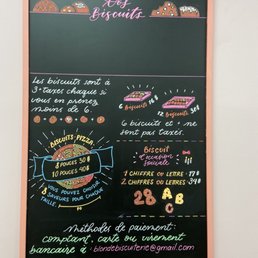 Nos
Biscuits
Les biscuits sont à
3$ + taxes chaque si
vous en prenez
moins de 6.
6 Biscuits 16$
12 Biscuits 30$
6 biscuits et + ne
sont pas taxés.
BISCUITS PIZZA
8 POUCES 30$
10 POUCES 40$
VOUS POUVEZ CHOISIR
SAVEURS POUR CHAQUE
TAILLE
Biscuit
d'occasion
spéciale
1 CHIFFRE OU LETRE
2 CHIFFRES OU LETRES
28 A B C
méthodes de paiement:
comptant, carte ou virement
bancaire à blondebiscuiterie@gmail.com